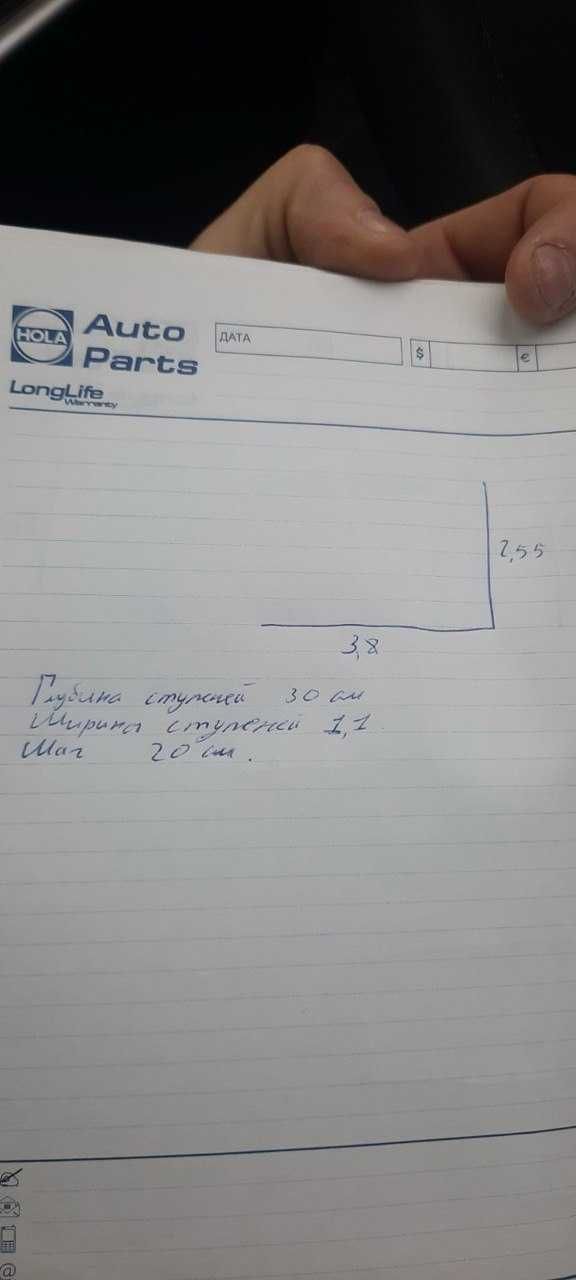 HOLA
Auto
Parts
LongLife
Warranty
ДАТА
$
€
2,55
3,8
Глубина ступеней 30 см
Ширина ступеней 1,1
Шаг 20 см.
@